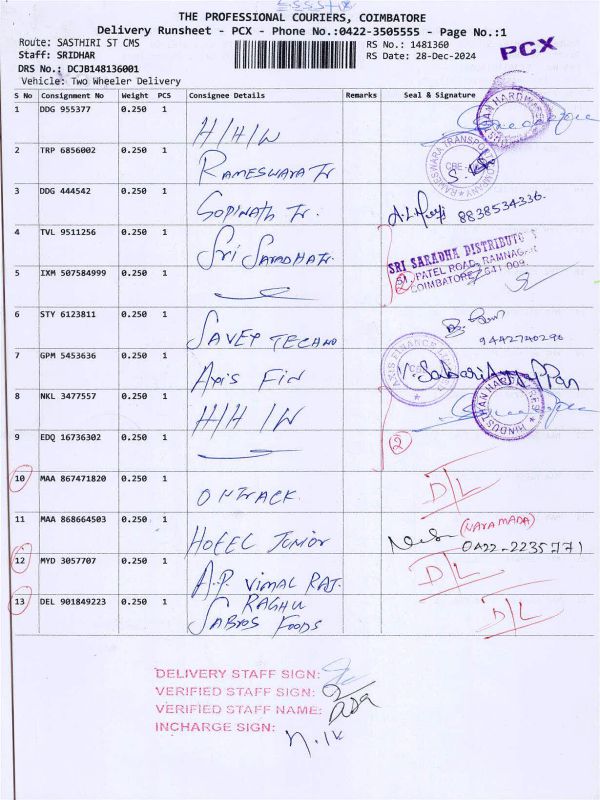 THE PROFESSIONAL COURIERS, COIMBATORE
Delivery Runsheet - PCX - Phone No.:0422-3505555 - Page No.:1
Route: SASTHIRI ST CMS
RS No.: 1481360
PCX
Staff: SRIDHAR
RS Date: 28-Dec-2024
DRS No.: DCJB148136001
Vehicle: Two Wheeler Delivery
S No Consignment No Weight PCS Consignee Details Remarks Seal & Signature
1 DDG 955377 0.250 1 H/H/W
2 TRP 6856002 0.250 1 RAMESWARA Tr
RAMESWARA TRANSPORT COMPANY CBE
3 DDG 444542 0.250 1 GOPINATH Tr. 8838534336.
4 TVL 9511256 0.250 1 Sri SARADHA Tr.
SRI SARADHA DISTRIBUTO
PATEL ROAD, RAMNAGAR
COIMBATORE - 641 009.
5 IXM 507584999 0.250 1
2
6 STY 6123811 0.250 1 SAVEY TECHNO 9442740296
7 GPM 5453636 0.250 1 AXIS FIN
AXIS FINANCE
8 NKL 3477557 0.250 1 H/H/W
HINDUSTHAN HARDWARES
9 EDQ 16736302 0.250 1
2
10 MAA 867471820 0.250 1 ONTRACK D/L
11 MAA 868664503 0.250 1 HOTEL JUNIOR (NARAMADA)
0422-2235771
12 MYD 3057707 0.250 1 A.P. VIMAL RAJ. D/L
13 DEL 901849223 0.250 1 RAGHU
SABROS FOODS D/L
DELIVERY STAFF SIGN:
VERIFIED STAFF SIGN:
VERIFIED STAFF NAME:
INCHARGE SIGN: